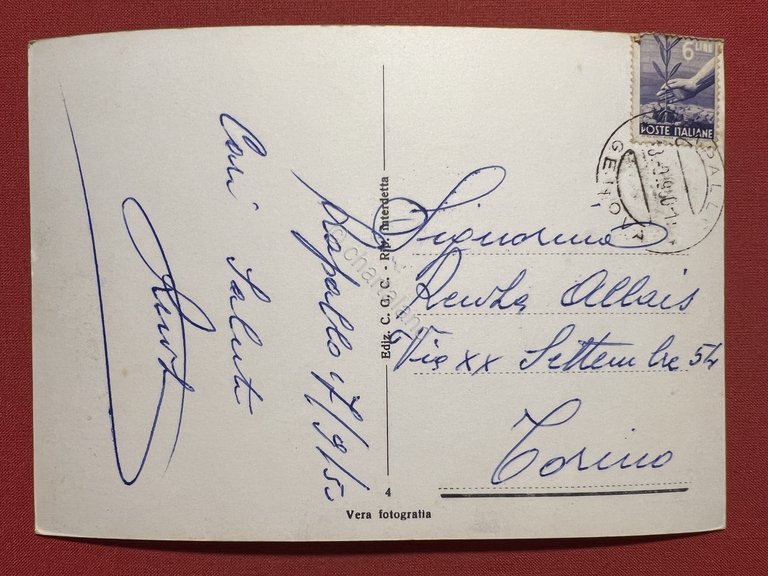 Cari Saluti
Rapallo 17/9/50
Signorina
Renata Allais
Via XX Settembre 54
Torino
6 LIRE
POSTE ITALIANE
RAPALLO
GENOVA
Ediz. C. C. C. - Rip. interdetta
4
Vera fotografia